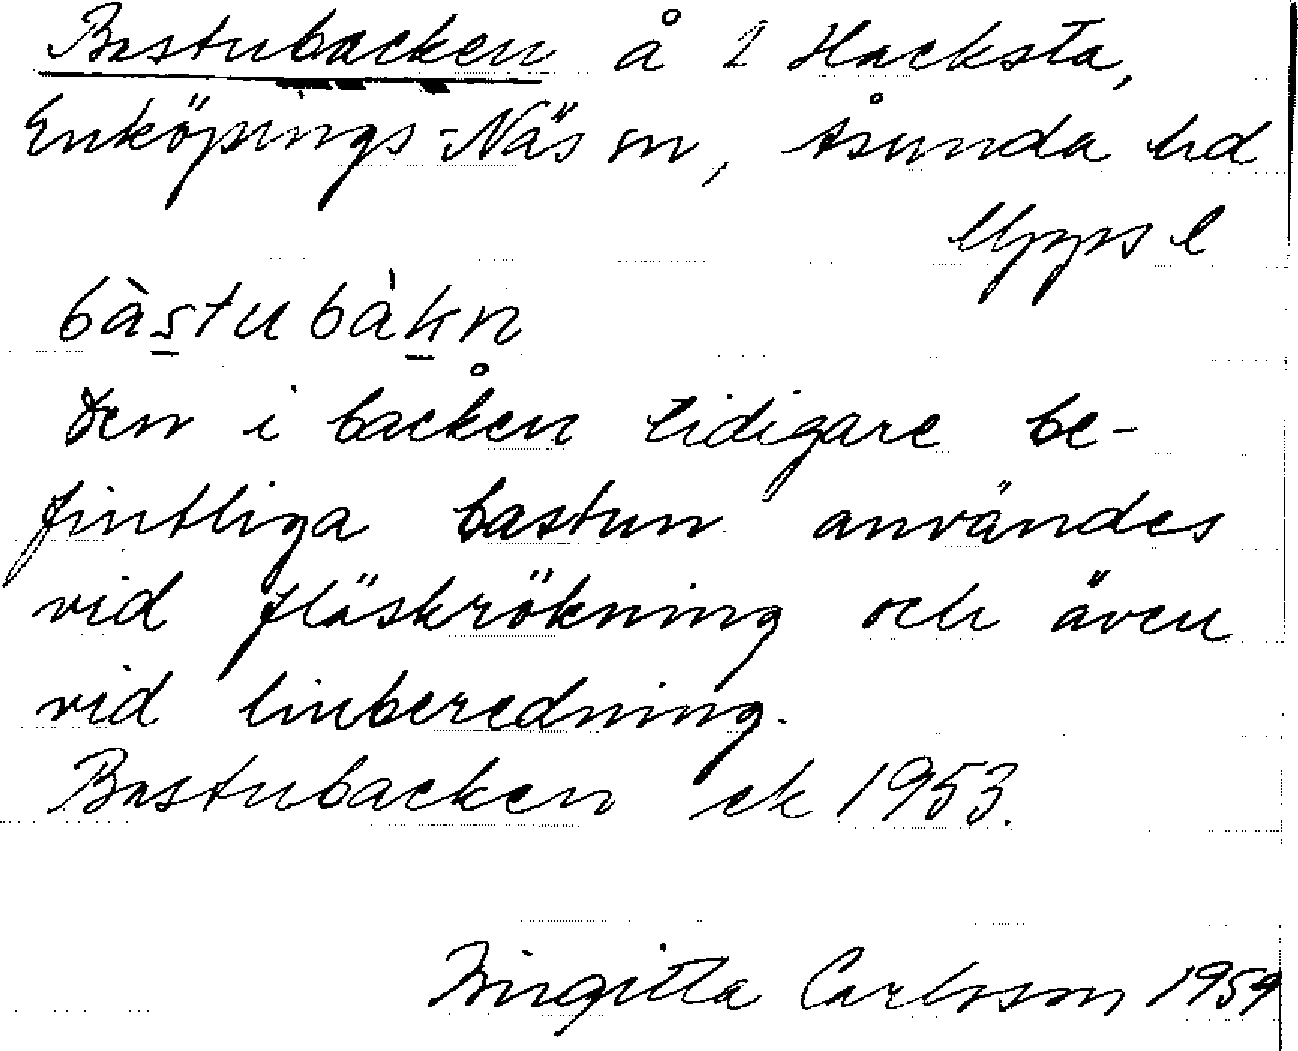 Bastubacken å 2 Hacksta,
Enköpings-Näs sn, Åsunda hd
Upps l
bàstubàkn̥
Den i backen tidigare be-
fintliga bastun användes
vid fläskrökning och även
vid linberedning.
Bastubacken ek 1953.
Birgitta Carlsson 1954